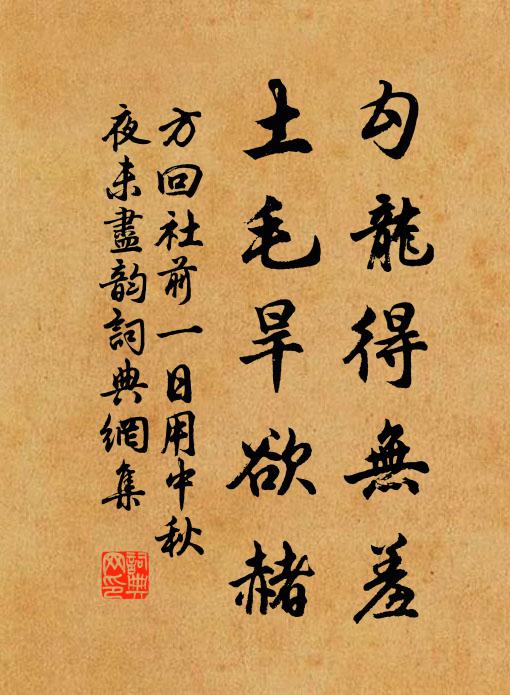 勾龍得無羞
土毛旱欲赭
方回社前一日用中秋
夜未盡韵詞典網集
詞典网印